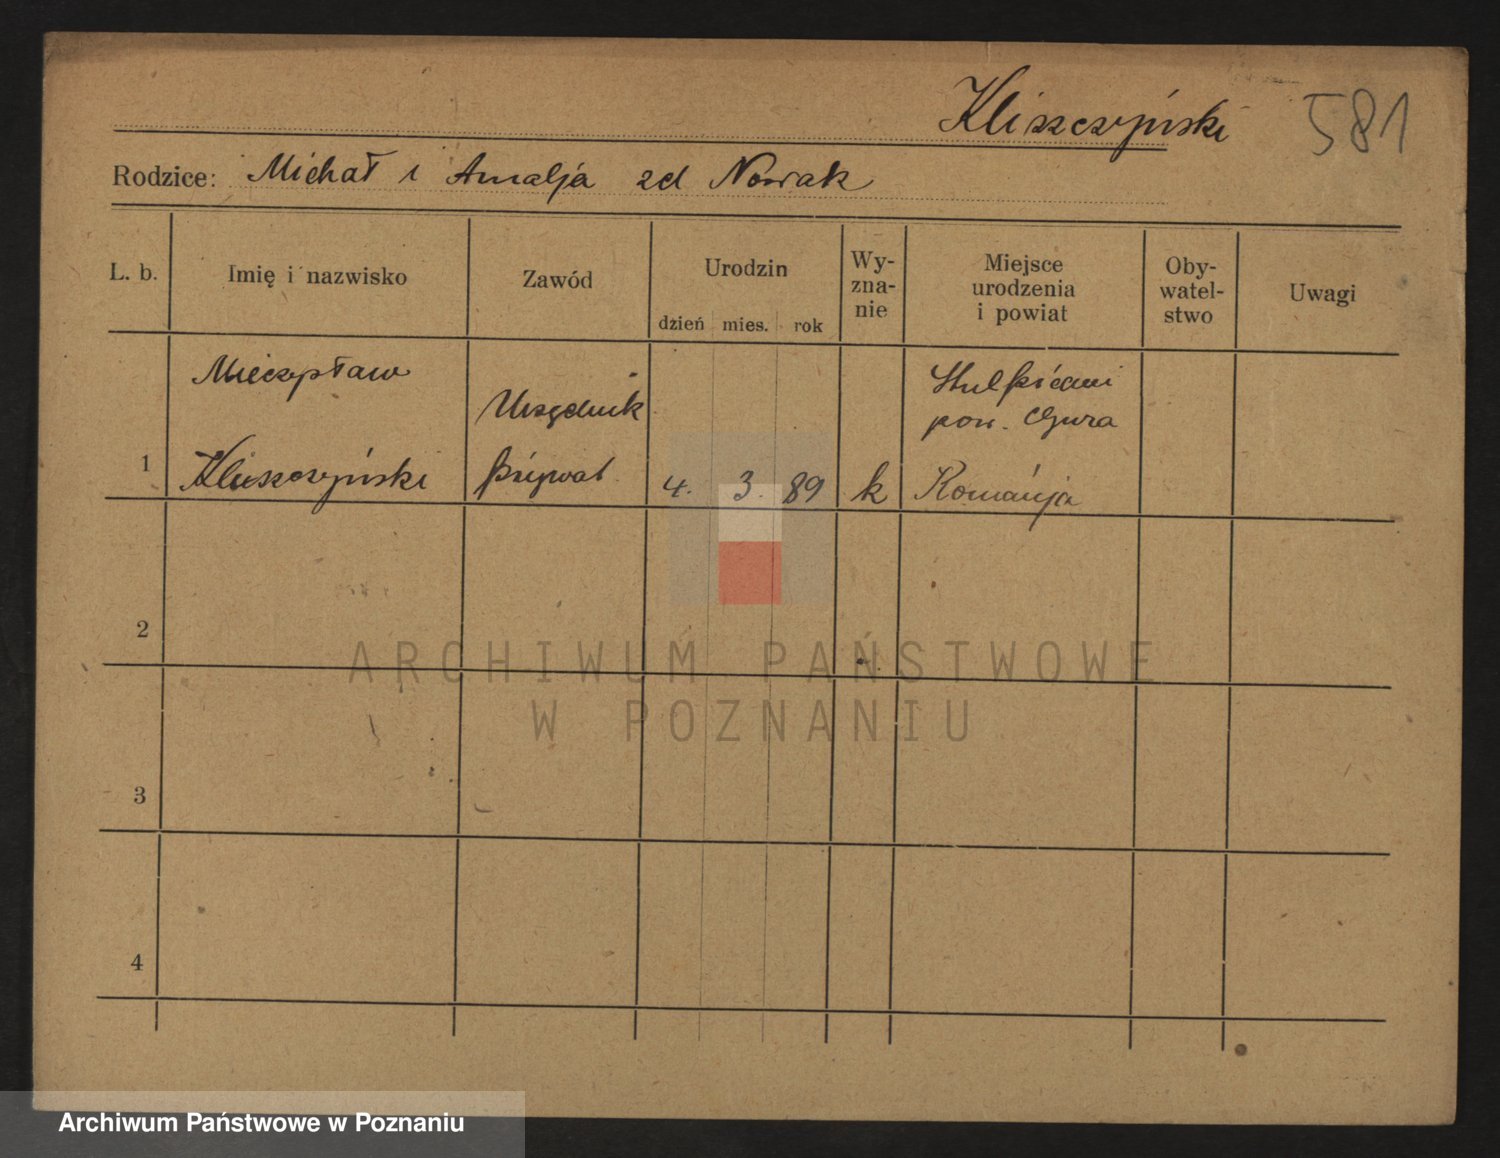 Kliszczyński 581
Rodzice: Michał i Amalja zd Nowak
L. b. Imię i nazwisko Zawód Urodzin Wy-zna-nie Miejsce urodzenia i powiat Oby-watel-stwo Uwagi
dzień mies. rok
Mieczysław
Urzędnik
pow. Gura
1 Kliszczyński prywat 4. 3. 89 k Romanja
2
ARCHIWUM PAŃSTWOWE
W POZNANIU
3
4
Archiwum Państwowe w Poznaniu